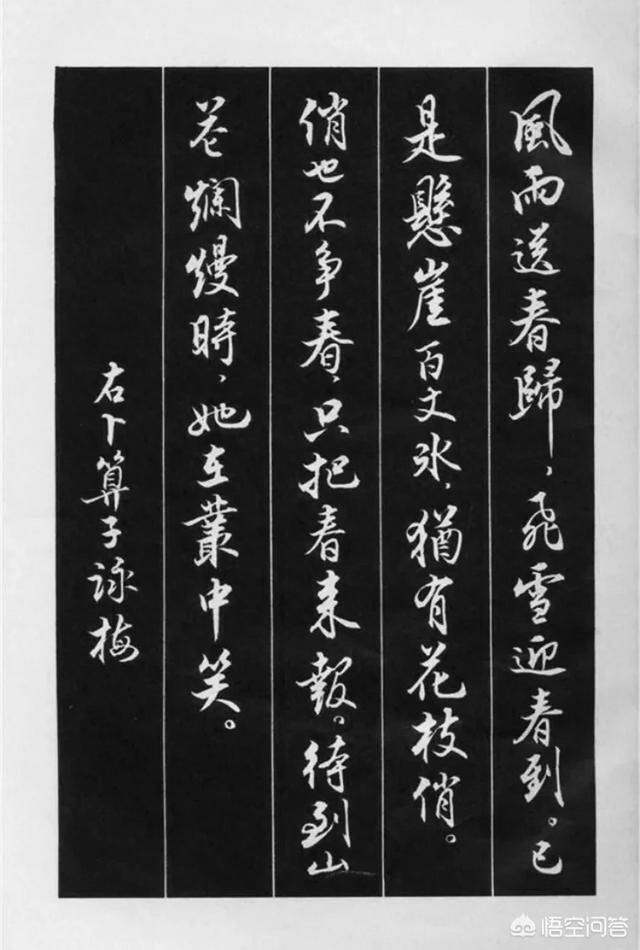 風雨送春歸，飛雪迎春到。已
是懸崖百丈冰，猶有花枝俏。
俏也不爭春，只把春來報。待到山
花爛熳時，她在叢中笑。
右卜算子詠梅
悟空问答